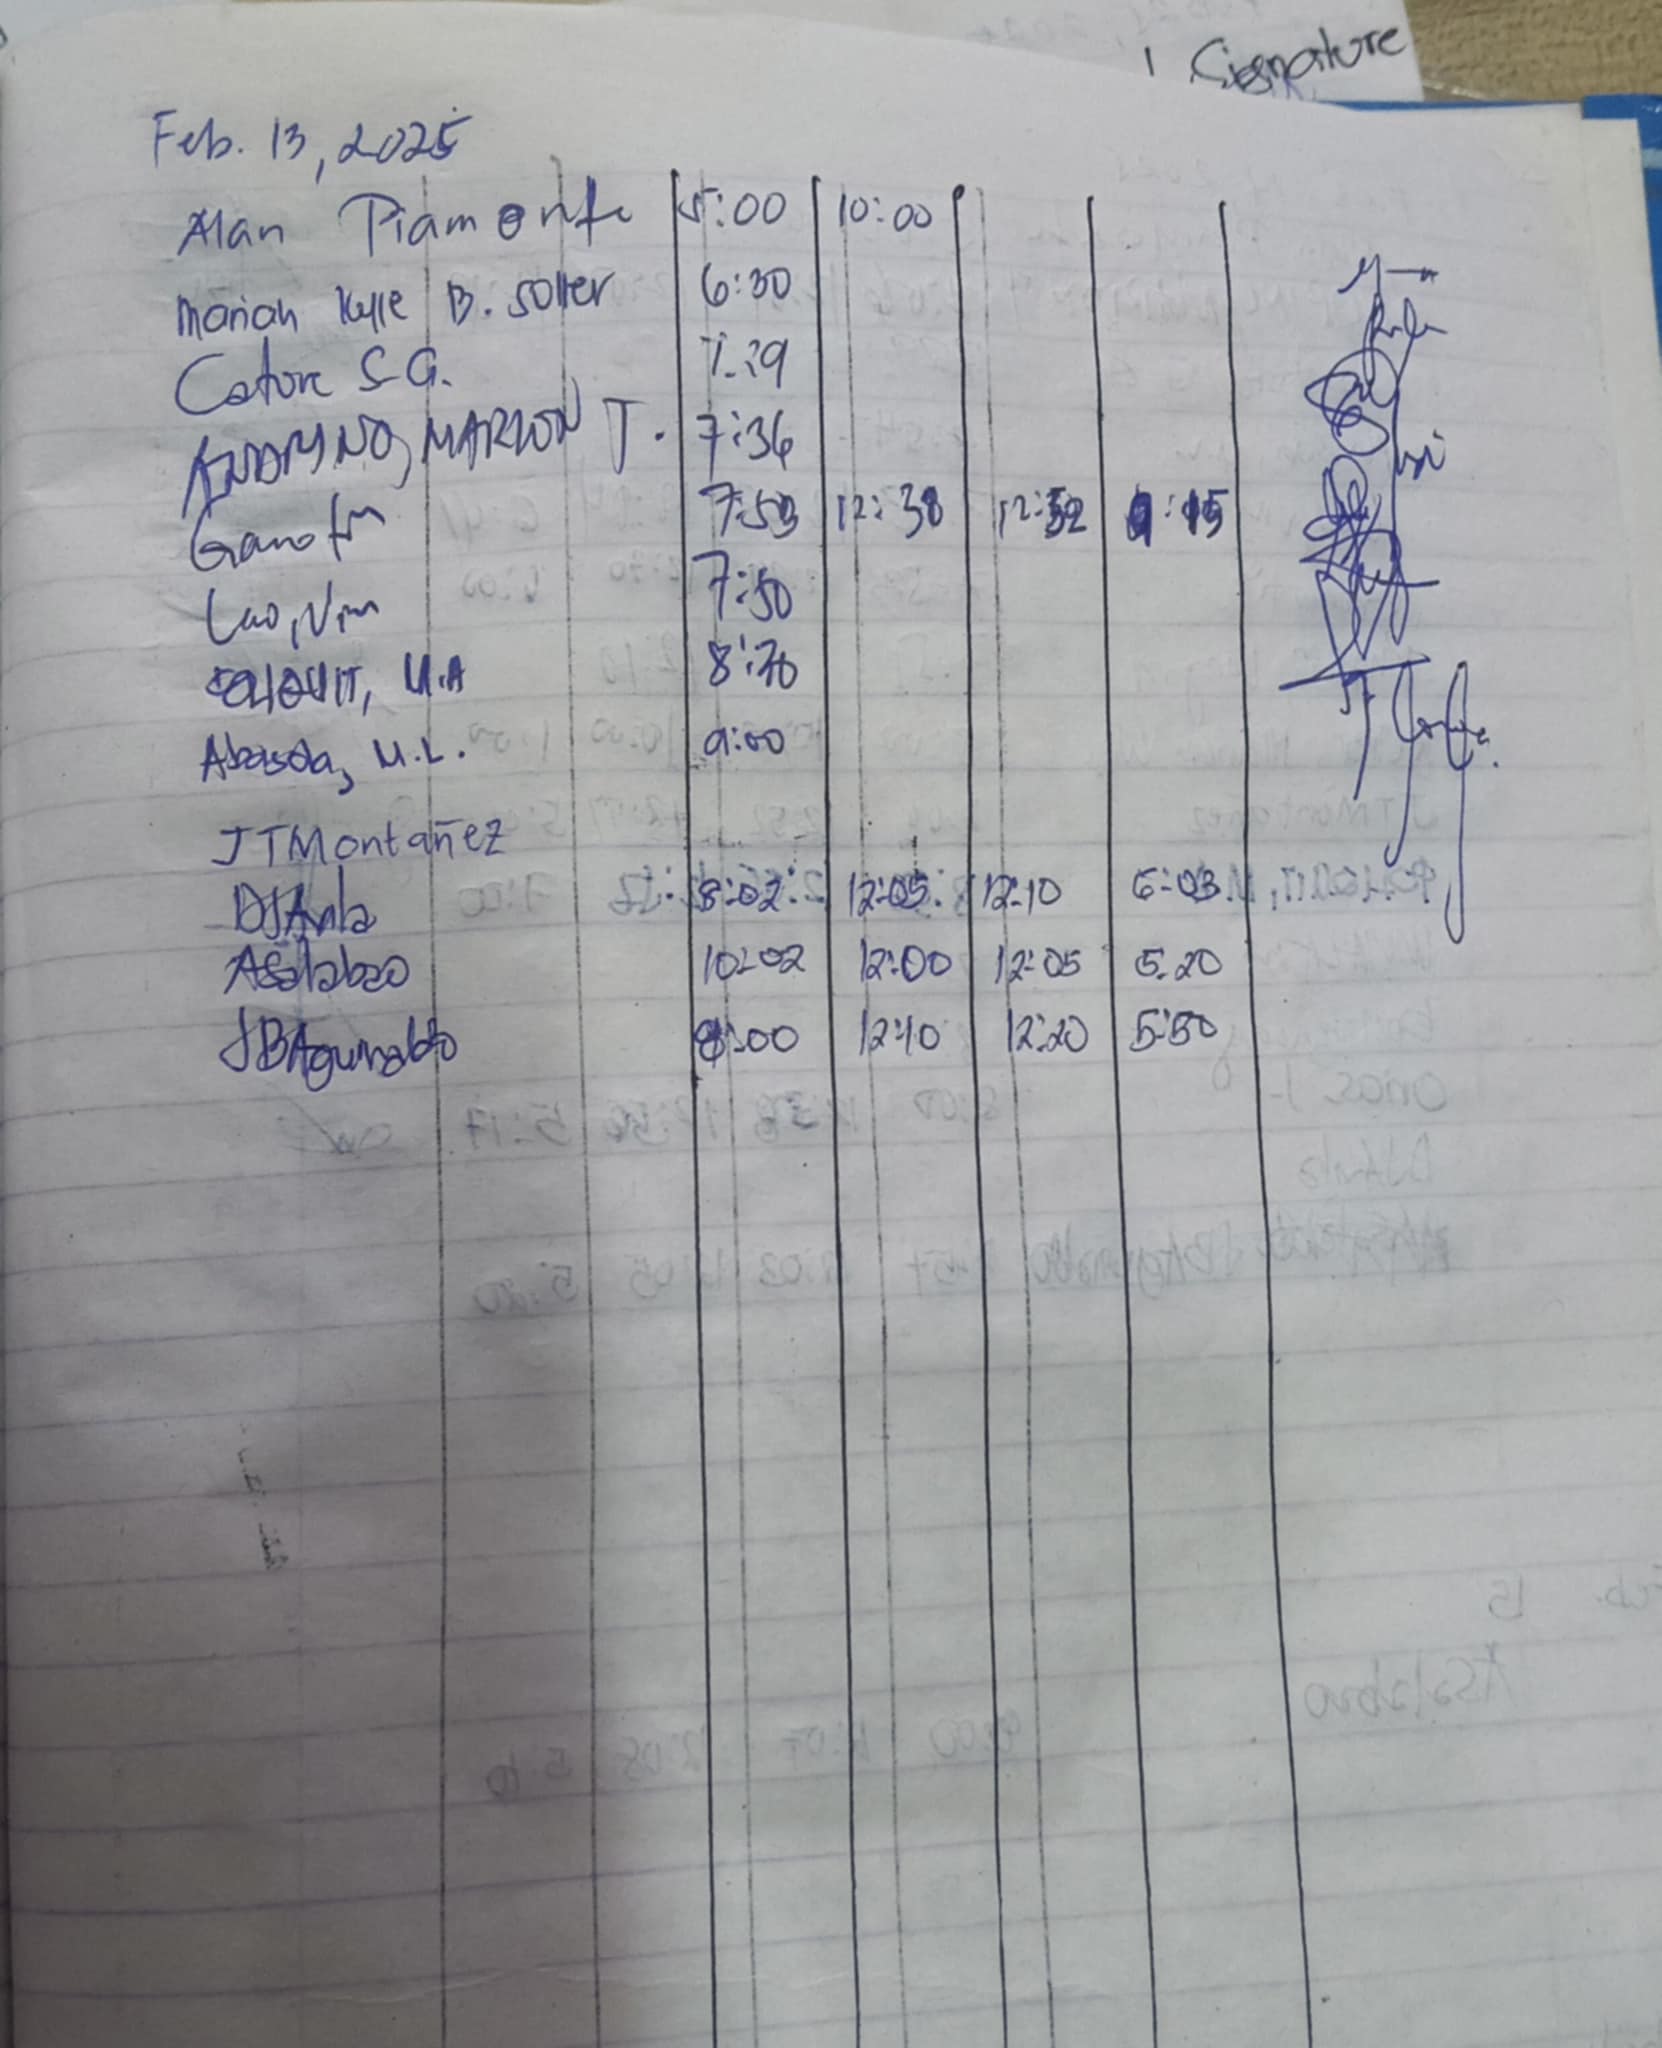 Signature
Feb. 13, 2025
Alan Piamonte 5:00 10:00
Mariah Kylle B. Soller 6:30
Catore S.G. 7:29
ANDAMNO, MARLON T. 7:36
Gano 7:53 12:38 12:52 15
Lao, 7:50
M.A 8:30
Abasola, M.L. 9:00
JTMontañez
DJAvila 8:02 12:05 12:10 6:03
ASalabao 10:02 12:00 12:05 5:20
JBAguinaldo 8:00 12:10 12:20 5:50